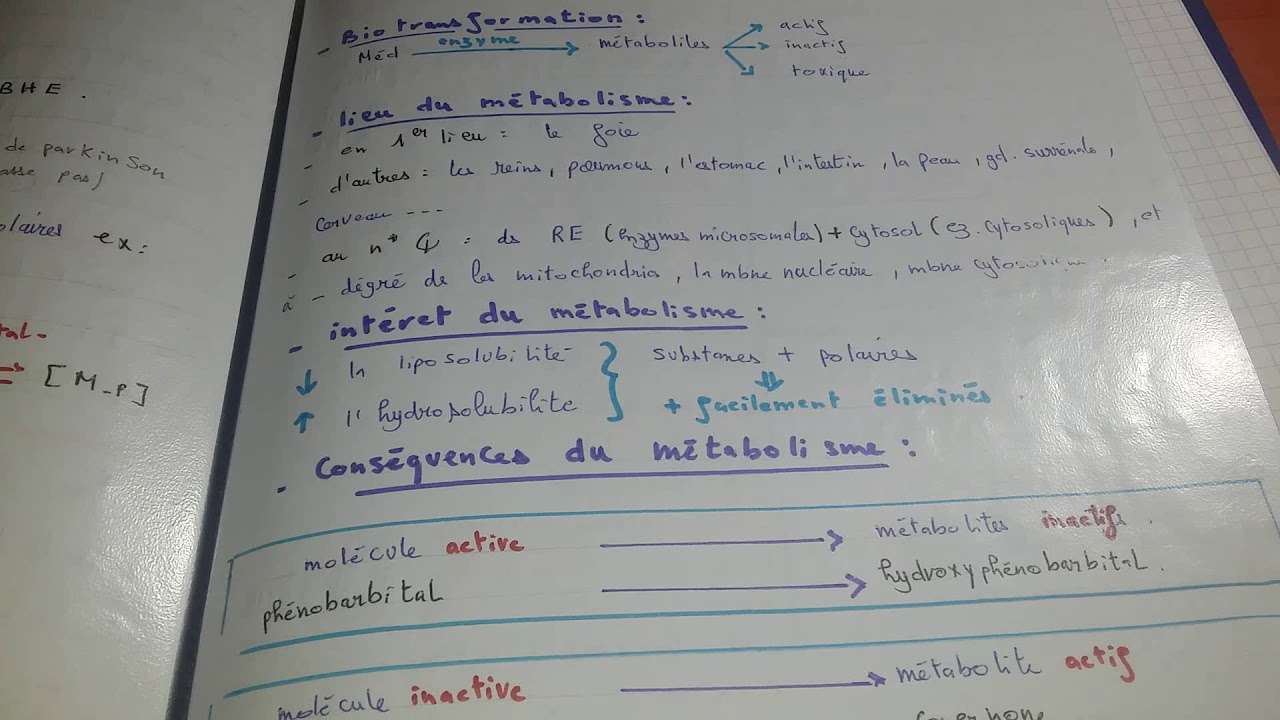 BHE.
de parkinson
asse pas)
olaires ex:
tal.
[M-P]
- Biotransformation :
Méd enzyme métabolites actif
inactif
toxique
- lieu du métabolisme :
- en 1er lieu = le foie
- d'autres = les reins, poumons, l'estomac, l'intestin, la peau, gl. surrénale,
cerveau ---
- au n* = ds RE (enzymes microsomales) + cytosol (ez. cytosoliques), et
à - dégré de les mitochondria, la mbne nucléaire, mbne
- intéret du métabolisme :
↓ la liposolubilité } substances + polaires
↑ l'hydrosolubilité + facilement éliminés
- Conséquences du métabolisme :
molécule active → métabolites inactifs.
phénobarbital → hydroxyphénobarbital.
molécule inactive → métabolite actif